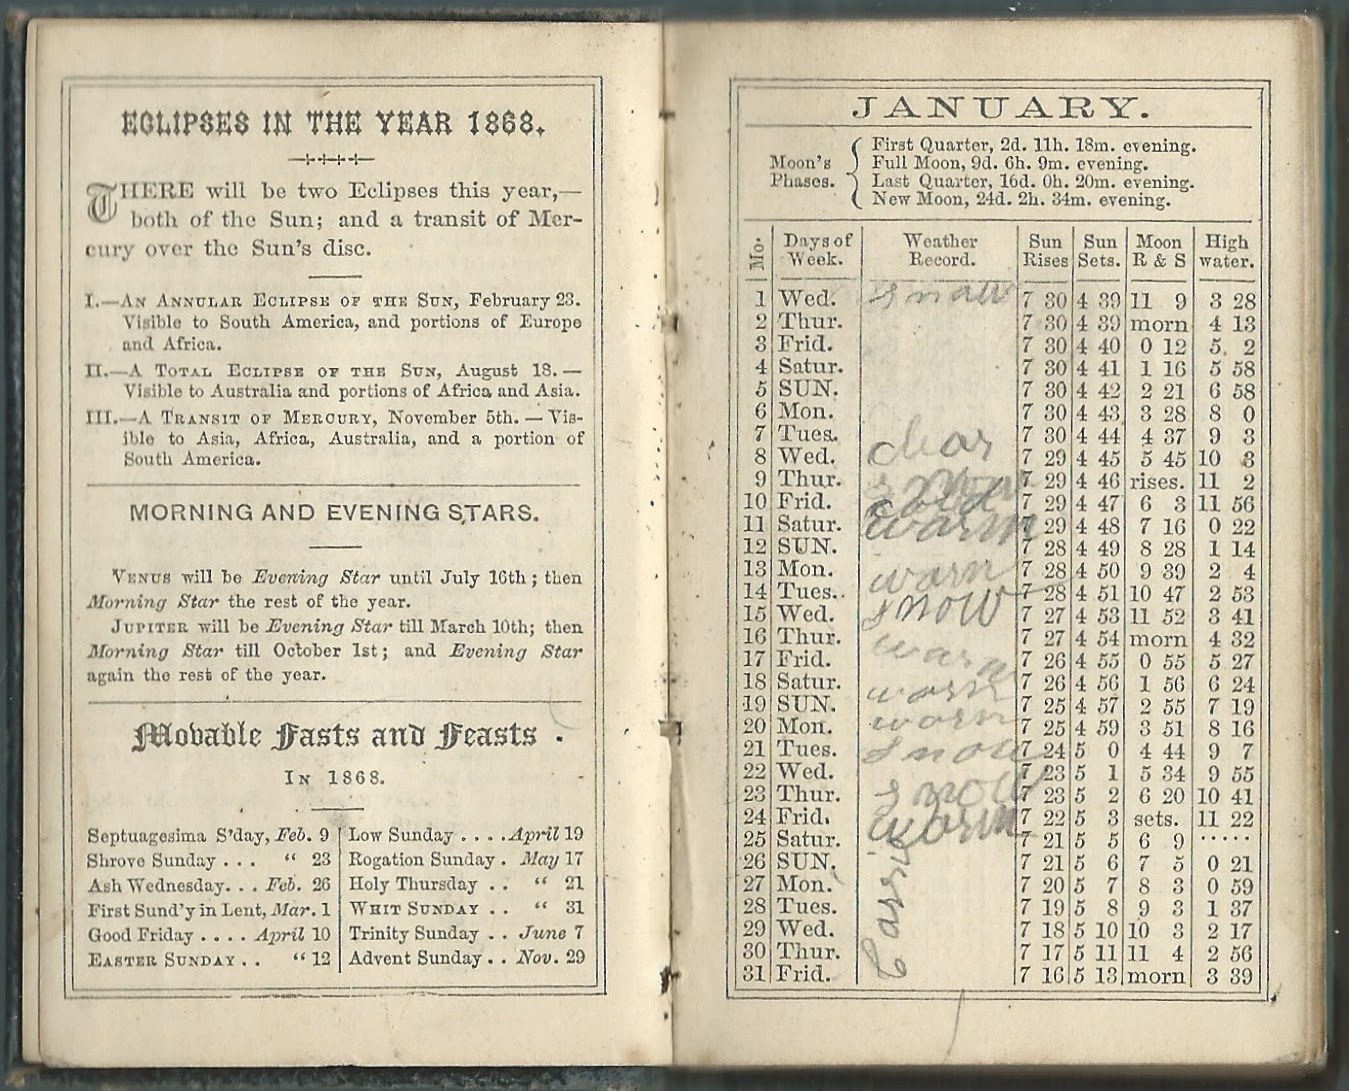 ECLIPSES IN THE YEAR 1868.
THERE will be two Eclipses this year,—
both of the Sun; and a transit of Mer-
cury over the Sun's disc.
I.—AN ANNULAR ECLIPSE OF THE SUN, February 23.
Visible to South America, and portions of Europe
and Africa.
II.—A TOTAL ECLIPSE OF THE SUN, August 18.—
Visible to Australia and portions of Africa and Asia.
III.—A TRANSIT OF MERCURY, November 5th.—Vis-
ible to Asia, Africa, Australia, and a portion of
South America.
MORNING AND EVENING STARS.
VENUS will be Evening Star until July 16th; then
Morning Star the rest of the year.
JUPITER will be Evening Star till March 10th; then
Morning Star till October 1st; and Evening Star
again the rest of the year.
Movable Fasts and Feasts
IN 1868.
Septuagesima S'day, Feb. 9 Low Sunday . . . . April 19
Shrove Sunday . . . " 23 Rogation Sunday . May 17
Ash Wednesday. . . Feb. 26 Holy Thursday . . " 21
First Sund'y in Lent, Mar. 1 WHIT SUNDAY . . " 31
Good Friday . . . . April 10 Trinity Sunday . . June 7
EASTER SUNDAY . . " 12 Advent Sunday . . Nov. 29
JANUARY.
Moon's Phases.
First Quarter, 2d. 11h. 18m. evening.
Full Moon, 9d. 6h. 9m. evening.
Last Quarter, 16d. 0h. 20m. evening.
New Moon, 24d. 2h. 34m. evening.
Mo. Days of Week. Weather Record. Sun Rises Sun Sets. Moon R & S High water.
1 Wed. snow 7 30 4 39 11 9 3 28
2 Thur. 7 30 4 39 morn 4 13
3 Frid. 7 30 4 40 0 12 5 2
4 Satur. 7 30 4 41 1 16 5 58
5 SUN. 7 30 4 42 2 21 6 58
6 Mon. 7 30 4 43 3 28 8 0
7 Tues. 7 30 4 44 4 37 9 3
8 Wed. clear 7 29 4 45 5 45 10 3
9 Thur. snow 7 29 4 46 rises. 11 2
10 Frid. cold 7 29 4 47 6 3 11 56
11 Satur. warm 7 29 4 48 7 16 0 22
12 SUN. 7 28 4 49 8 28 1 14
13 Mon. warm 7 28 4 50 9 39 2 4
14 Tues. 7 28 4 51 10 47 2 53
15 Wed. snow 7 27 4 53 11 52 3 41
16 Thur. warm 7 27 4 54 morn 4 32
17 Frid. 7 26 4 55 0 55 5 27
18 Satur. warm 7 26 4 56 1 56 6 24
19 SUN. 7 25 4 57 2 55 7 19
20 Mon. warm 7 25 4 59 3 51 8 16
21 Tues. snow 7 24 5 0 4 44 9 7
22 Wed. 7 23 5 1 5 34 9 55
23 Thur. snow 7 23 5 2 6 20 10 41
24 Frid. warm 7 22 5 3 sets. 11 22
25 Satur. 7 21 5 5 6 9 .....
26 SUN. 7 21 5 6 7 5 0 21
27 Mon. 7 20 5 7 8 3 0 59
28 Tues. 7 19 5 8 9 3 1 37
29 Wed. 7 18 5 10 10 3 2 17
30 Thur. 7 17 5 11 11 4 2 56
31 Frid. 7 16 5 13 morn 3 39